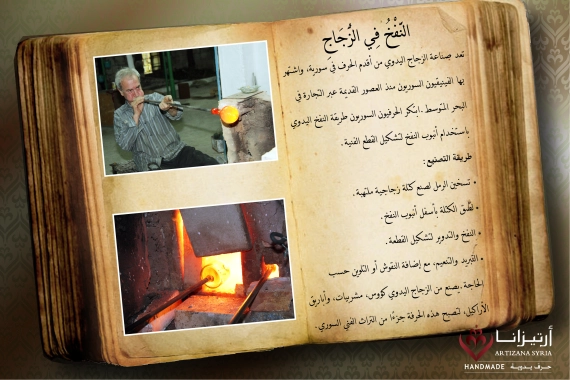 النّفْخُ فِي الزُّجَاجِ
تعد صناعة الزجاج اليدوي من أقدم الحرف في سورية، واشتهر
بها الفينيقيون السوريون منذ العصور القديمة عبر التجارة في
البحر المتوسط. ابتكر الحرفيون السوريون طريقة النفخ اليدوي
باستخدام أنبوب النفخ لتشكيل القطع الفنية.
طريقة التصنيع:
• تسخين الرمل لصنع كتلة زجاجية ملتهبة.
• تطبق الكتلة بأسفل أنبوب النفخ.
• النفخ والتدوير لتشكيل القطعة.
• التبريد والتنعيم، مع إضافة النقوش أو التلوين حسب
الحاجة. يصنع من الزجاج اليدوي كؤوس، مشربيات، وأباريق
الأراكيل، لتصبح هذه الحرفة جزءًا من التراث الفني السوري.
أرتيزانا
ARTIZANA SYRIA
HANDMADE حرف يدوية